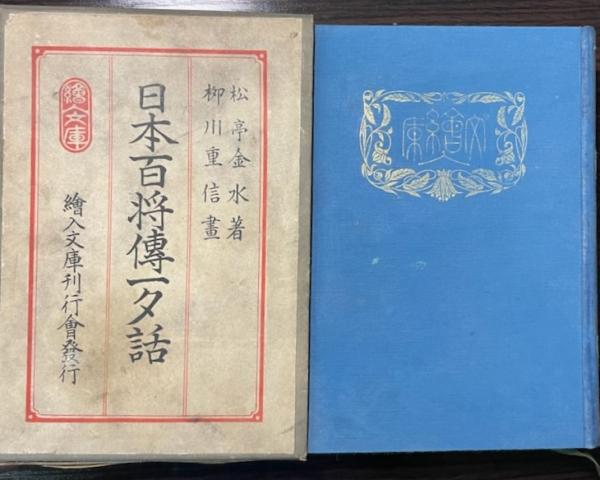 松亭金水著
柳川重信畫
日本百将傳一夕話
繪文庫
繪入文庫刊行會發行
繪入文庫